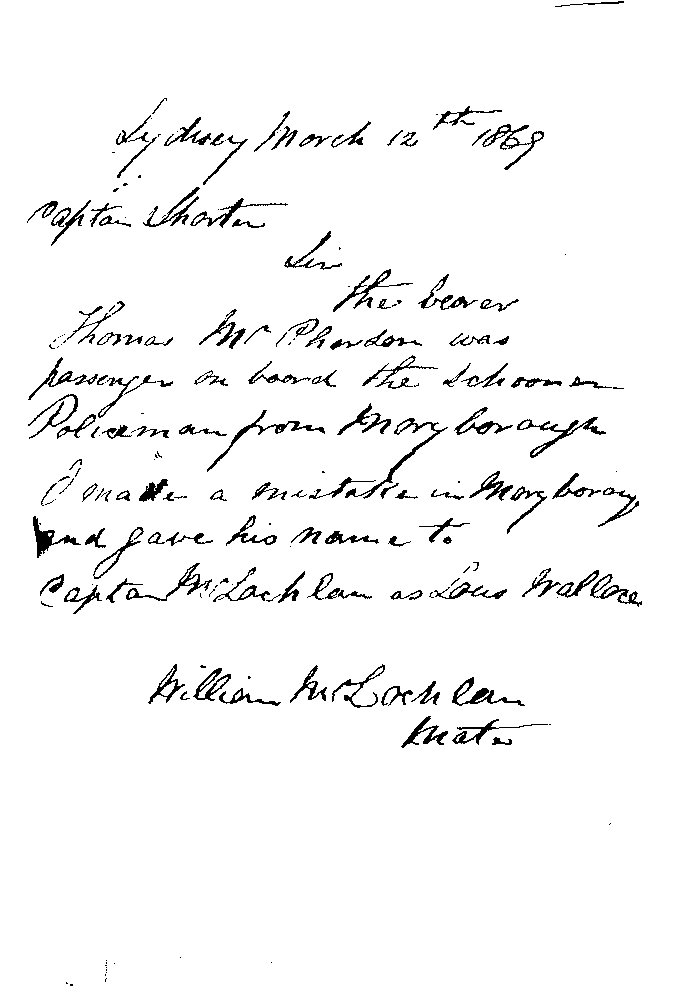 Sydney March 12th 1869
Captan Shorter
Sir
the bearer
Thomas Mc Pherdson was
passenger on board the Schooner
Policeman from Maryborough
I made a mistake in Maryboroug
and gave his name to
Captan McLachlan as Lous Wallace
William McLachlan
Mate